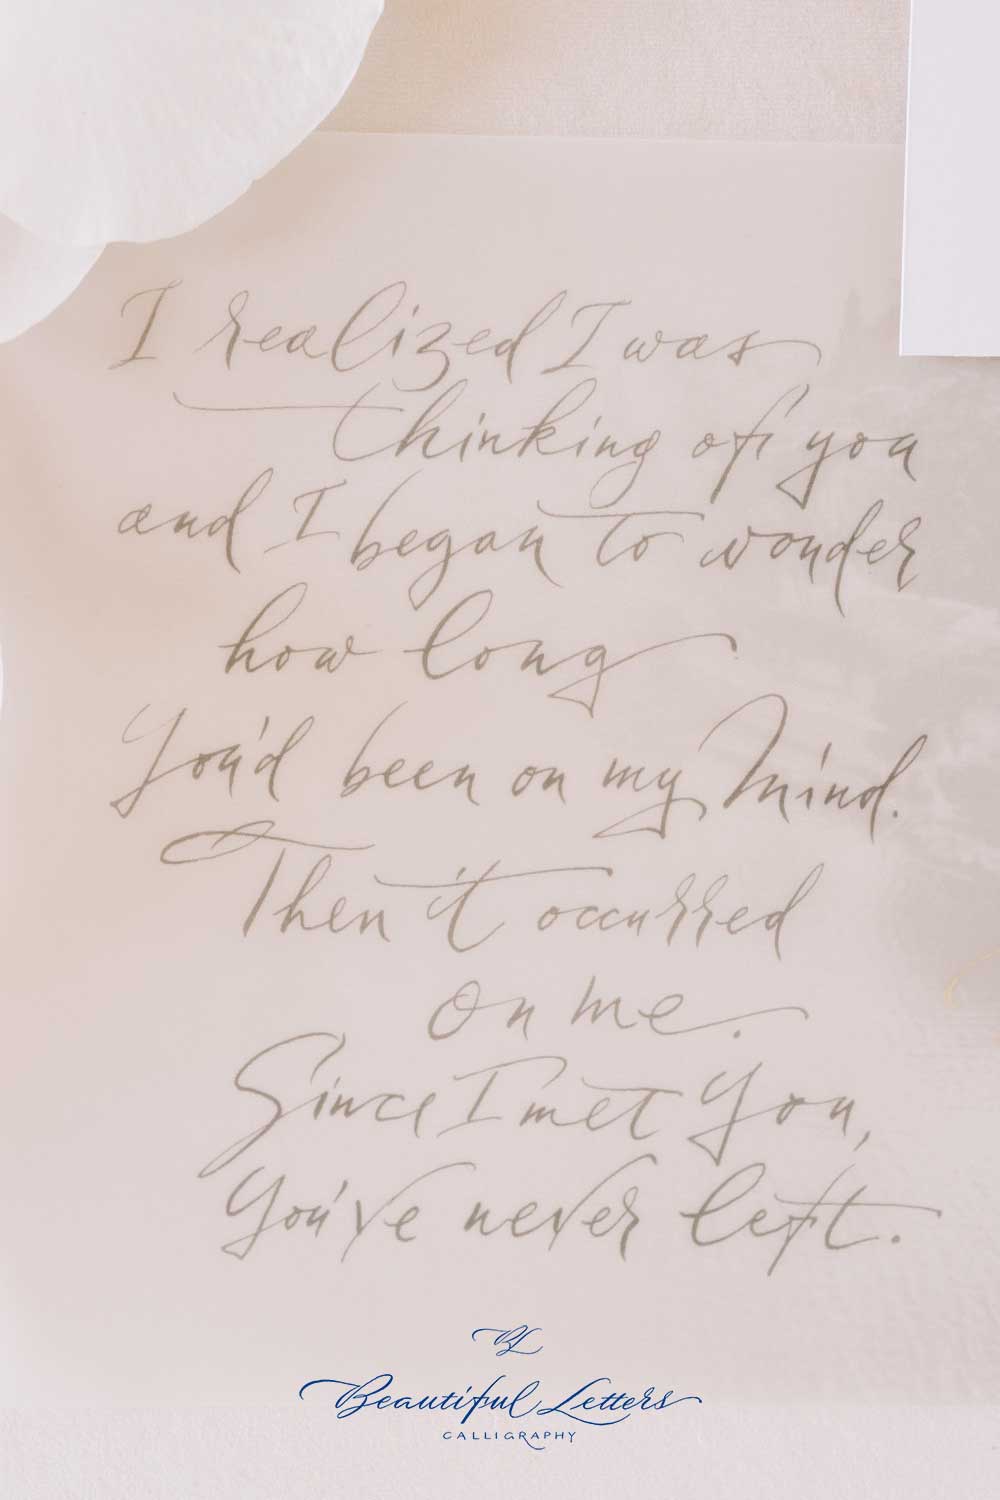 I realized I was
thinking of you
and I began to wonder
how long
You'd been on my Mind.
Then it occurred
on me.
Since I met You,
You've never left.
BL
Beautiful Letters
CALLIGRAPHY